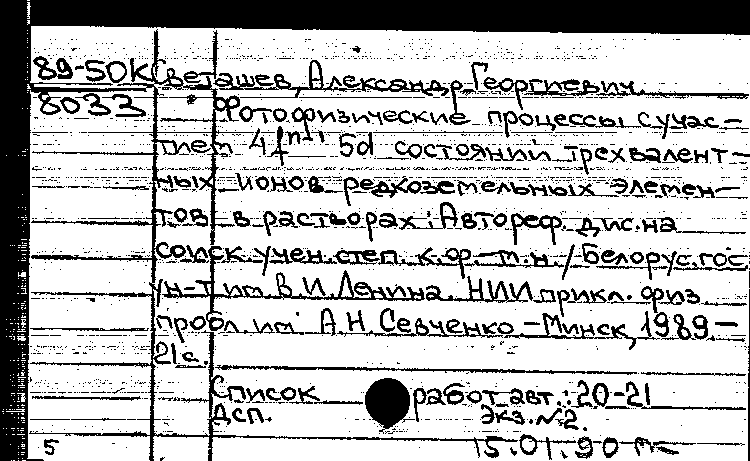 89-50К Светашев, Александр Георгиевич.
8033 Фотофизические процессы с учас-
тием 4fⁿ⁻¹ 5d состояний трехвалент-
ных ионов редкоземельных элемен-
тов в растворах : Автореф. дис. на
соиск. учен. степ. к.ф.-м.н. / Белорус. гос.
ун-т им. В.И.Ленина. НИИ прикл. физ.
пробл. им. А.Н. Севченко – Минск, 1989. –
21 с.
Список работ авт.: 20-21
Дсп. Экз. №2.
5 15.01.90